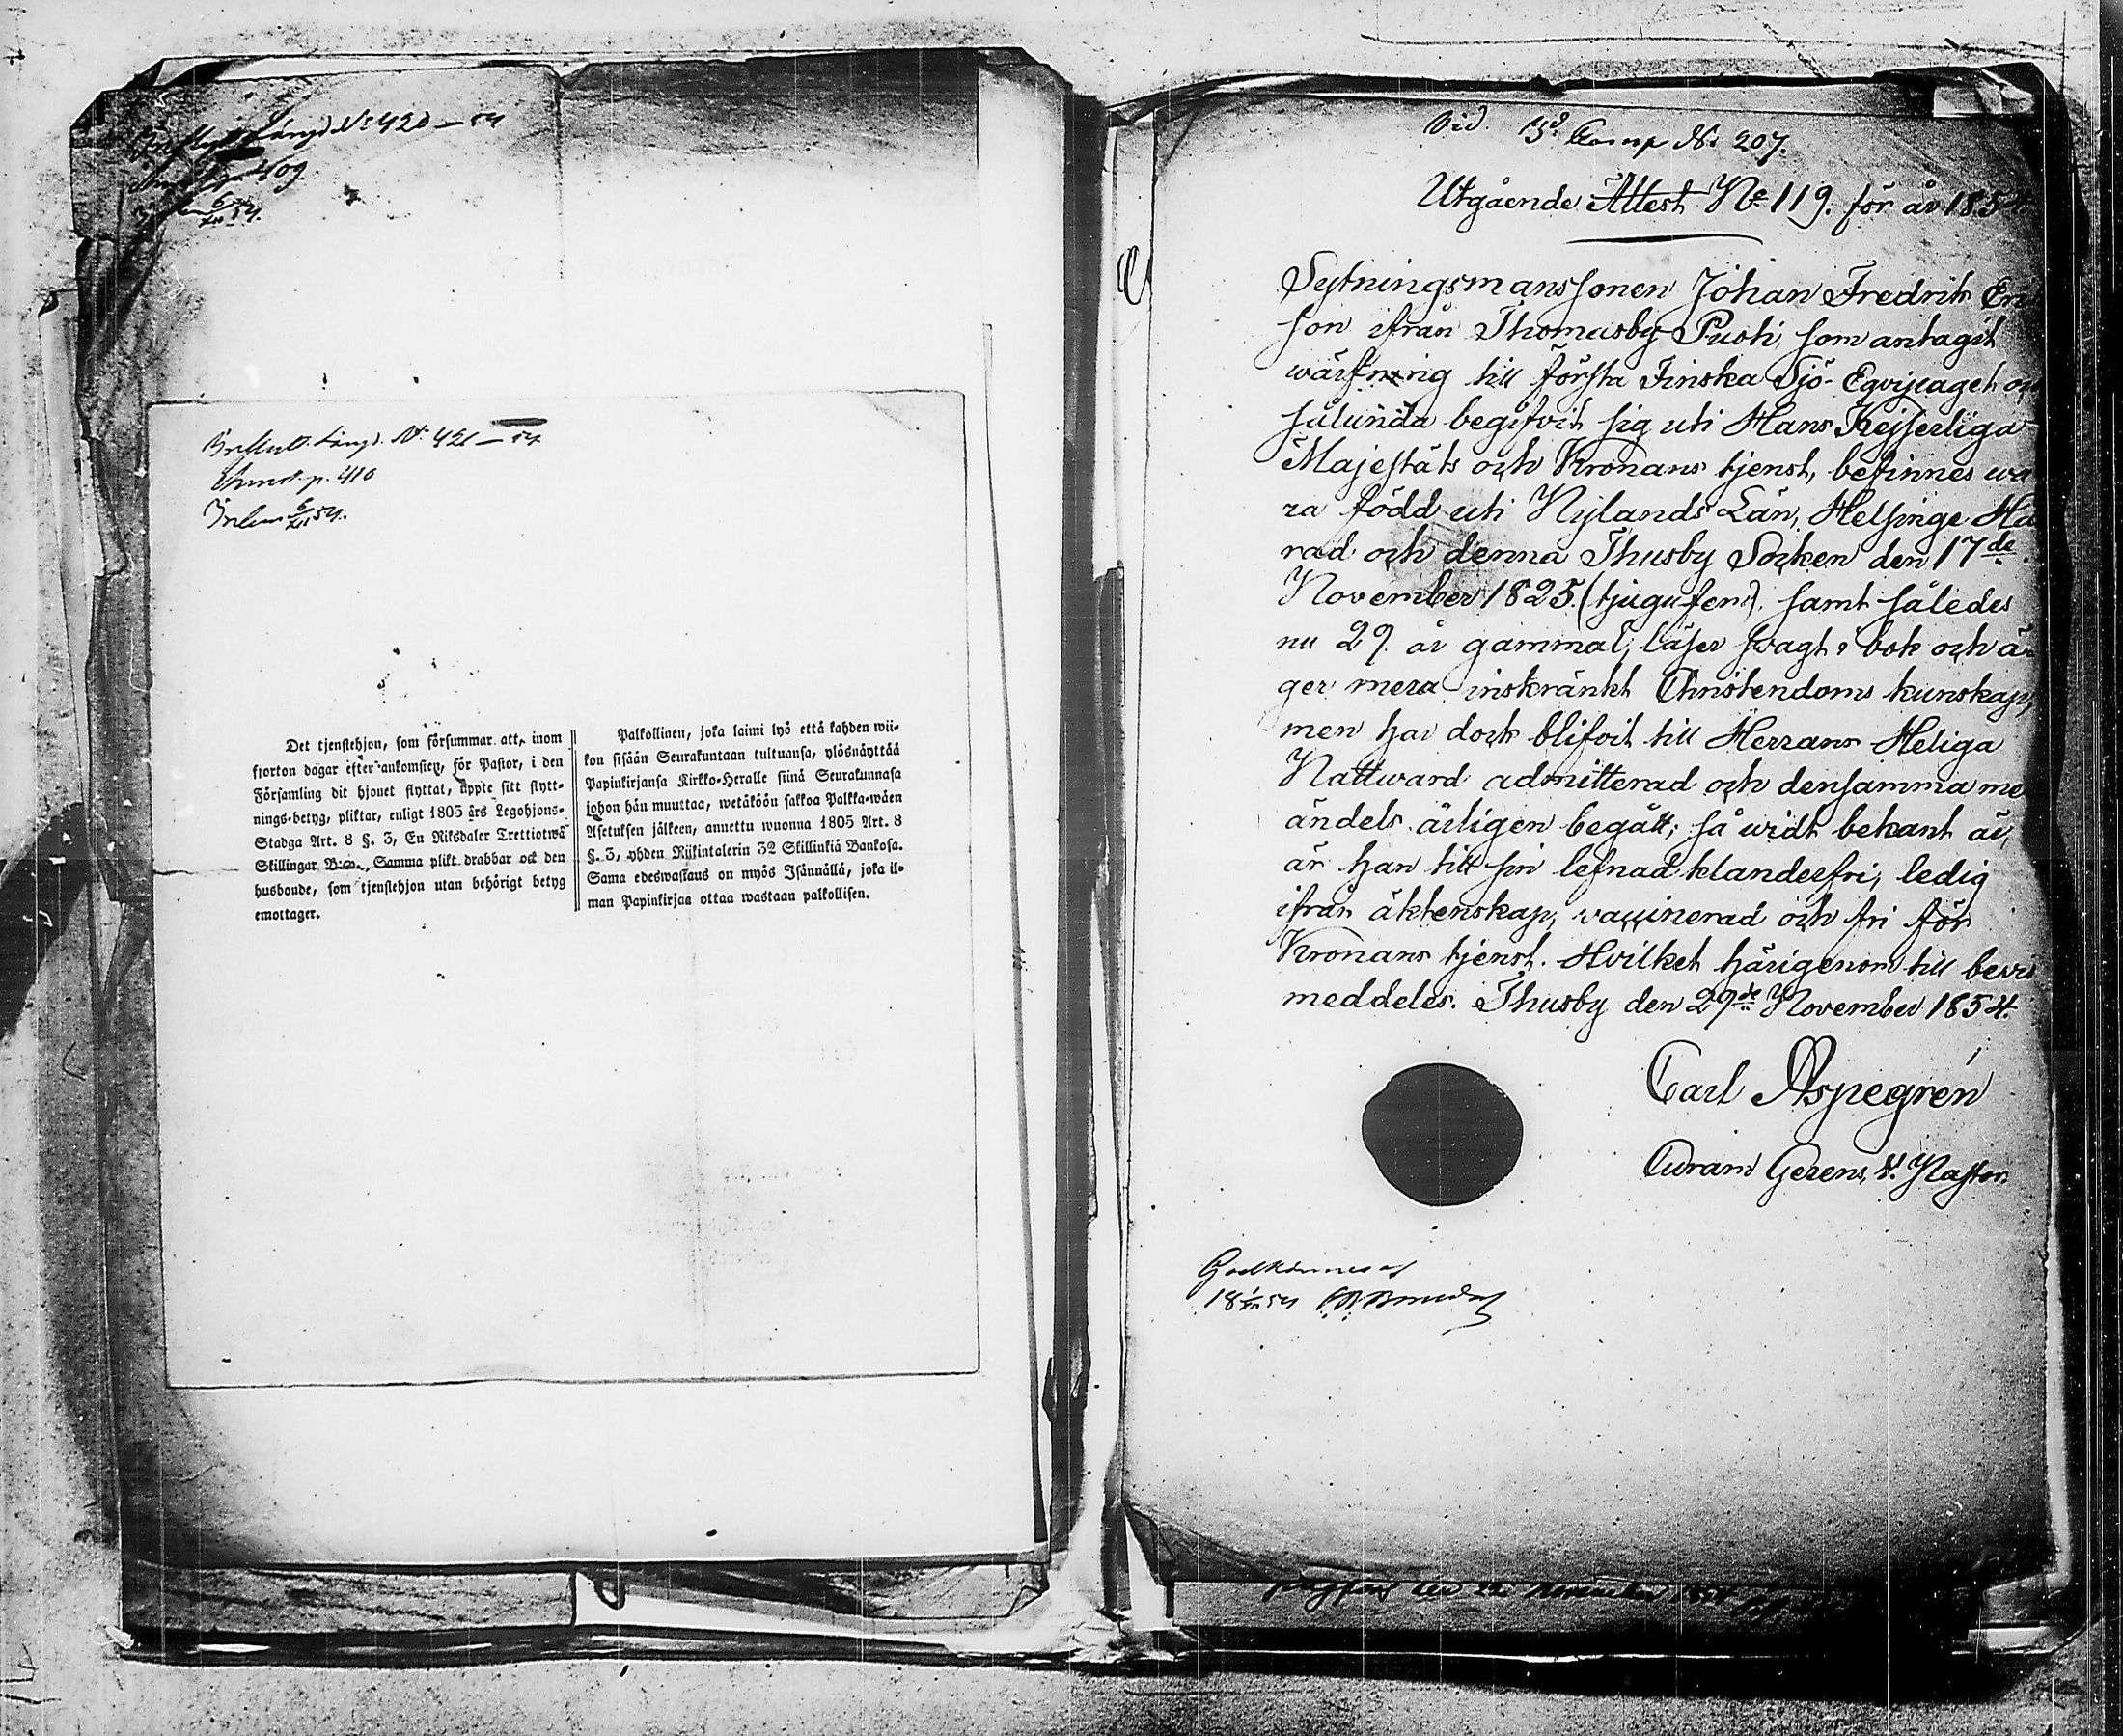 Längd No 420 – 54
409
6/XII 54.
Inflytt. Längd. No. 421 – 54
p. 410
6/XII 54.
Det tjenstehjon, som försummar att, inom
fjorton dagar efter ankomsten, för Pastor, i den
Församling dit hjonet flyttat, uppte sitt flytt-
nings-betyg, pliktar, enligt 1805 års Legohjons-
Stadga Art. 8 §. 3, En Riksdaler Trettiotwå
Skillingar B:co. Samma plikt drabbar ock den
husbonde, som tjenstehjon utan behörigt betyg
emottager.
Palkollinen, joka laimi lyö että kahden wii-
kon sisään Seurakuntaan tultuansa, ylösnäyttää
Papinkirjansa Kirkko-Heralle siinä Seurakunnasa
johon hän muuttaa, wetäköön sakkoa Palkka-wäen
Asetuksen jälkeen, annettu wuonna 1805 Art. 8
§. 3, yhden Riikintalerin 32 Skillinkiä Bankosa.
Sama edeswastaus on myös Isännällä, joka il-
man Papinkirjaa ottaa wastaan palkollisen.
Vid 3d. Comp No 207.
Utgående Attest No 119. för år 1854.
Sytningsmanssonen Johan Fredrik Eric
son ifrån Thomasby Pusti, som antagit
wärfning till Första Finska Sjö-Eqvipaget och
sålunda begifvit sig uti Hans Kejserliga
Majestäts och Kronans tjenst, befinnes wa
ra född uti Nylands Län, Helsinge Hä
rad och denna Thusby Socken den 17de
November 1825. (tjugufem). samt således
nu 29 år gammal; läser svagt i bok och ä
ger mera inskränkt Christendoms kunskap,
men har dock blifvit till Herrans Heliga
Nattward admitterad och densamma me
andels ärligen begått; så widt bekant är,
är han till sin lefnad klanderfri, ledig
ifrån äktenskap, vaccinerad och fri för
Kronans tjenst. Hvilket härigenom till bevis
meddeles. Thusby den 29de November 1854.
Carl Aspegrén
Curam Gerens, V. Pastor.
Godkännes af
18 1/XII 54
den November 1854